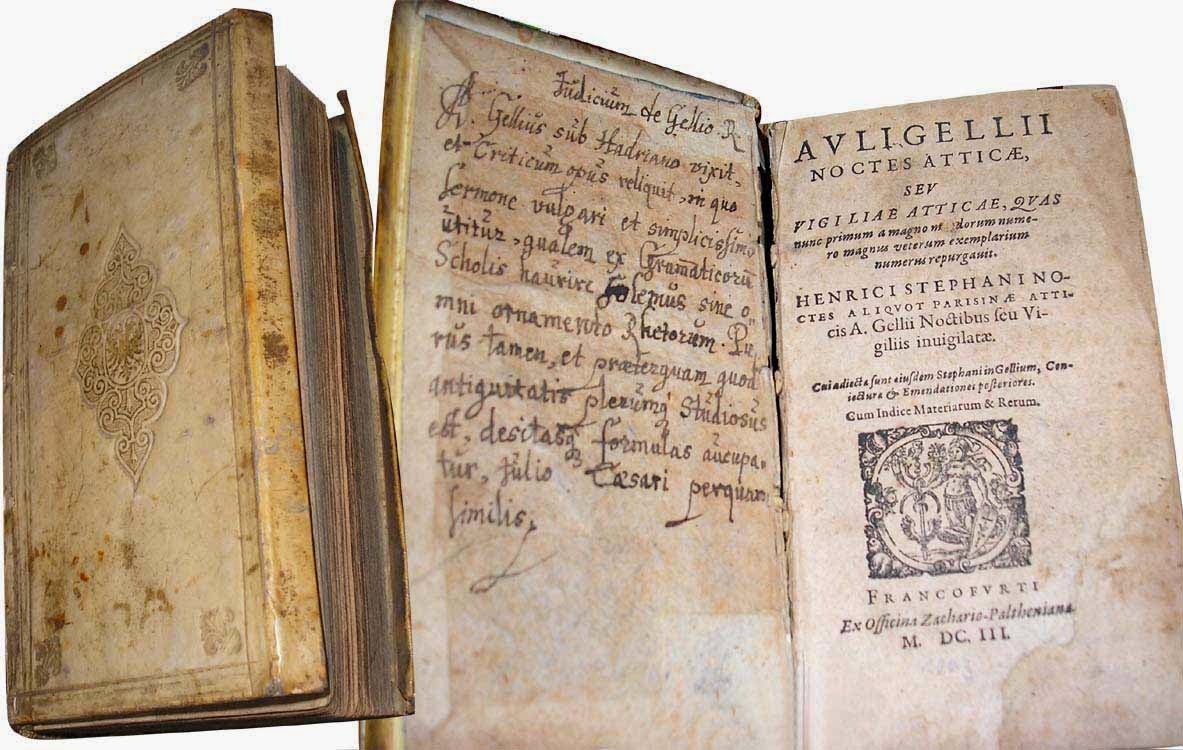 Judiciũm de Gellio. R
A. Gelliũs sũb Hadriano vixit,
et Criticũm opũs reliquit, in quo
sermone vulgari et simplicissimo
ũtitũr, qualem ex Gramaticorũ
Scholis haũrire solemũs sine o-
mni ornamento Rhetorum. Pu,
rũs tamen, et præterquam quod
antiquitatis plerũmq̃ Studiosũs
est, desitasq̃ formulas aũcupa-
tũr, Julio Cæsari perquam
similis,
AVLI GELLII
NOCTES ATTICÆ,
SEV
VIGILIAE ATTICAE, QVAS
nunc primum a magno m dorum nume-
ro magnus veterum exemplarium
numerus repurgauit.
HENRICI STEPHANI NO-
CTES ALIQVOT PARISINÆ ATTI-
cis A. Gellii Noctibus ſeu Vi-
giliis inuigilatæ.
Cui adiecta ſunt eiuſdem Stephani in Gellium, Con-
iecturæ & Emendationes poſteriores.
Cum Indice Materiarum & Rerum.
FRANCOFVRTI
Ex Officina Zachario-Paltheniana
M. DC. III.